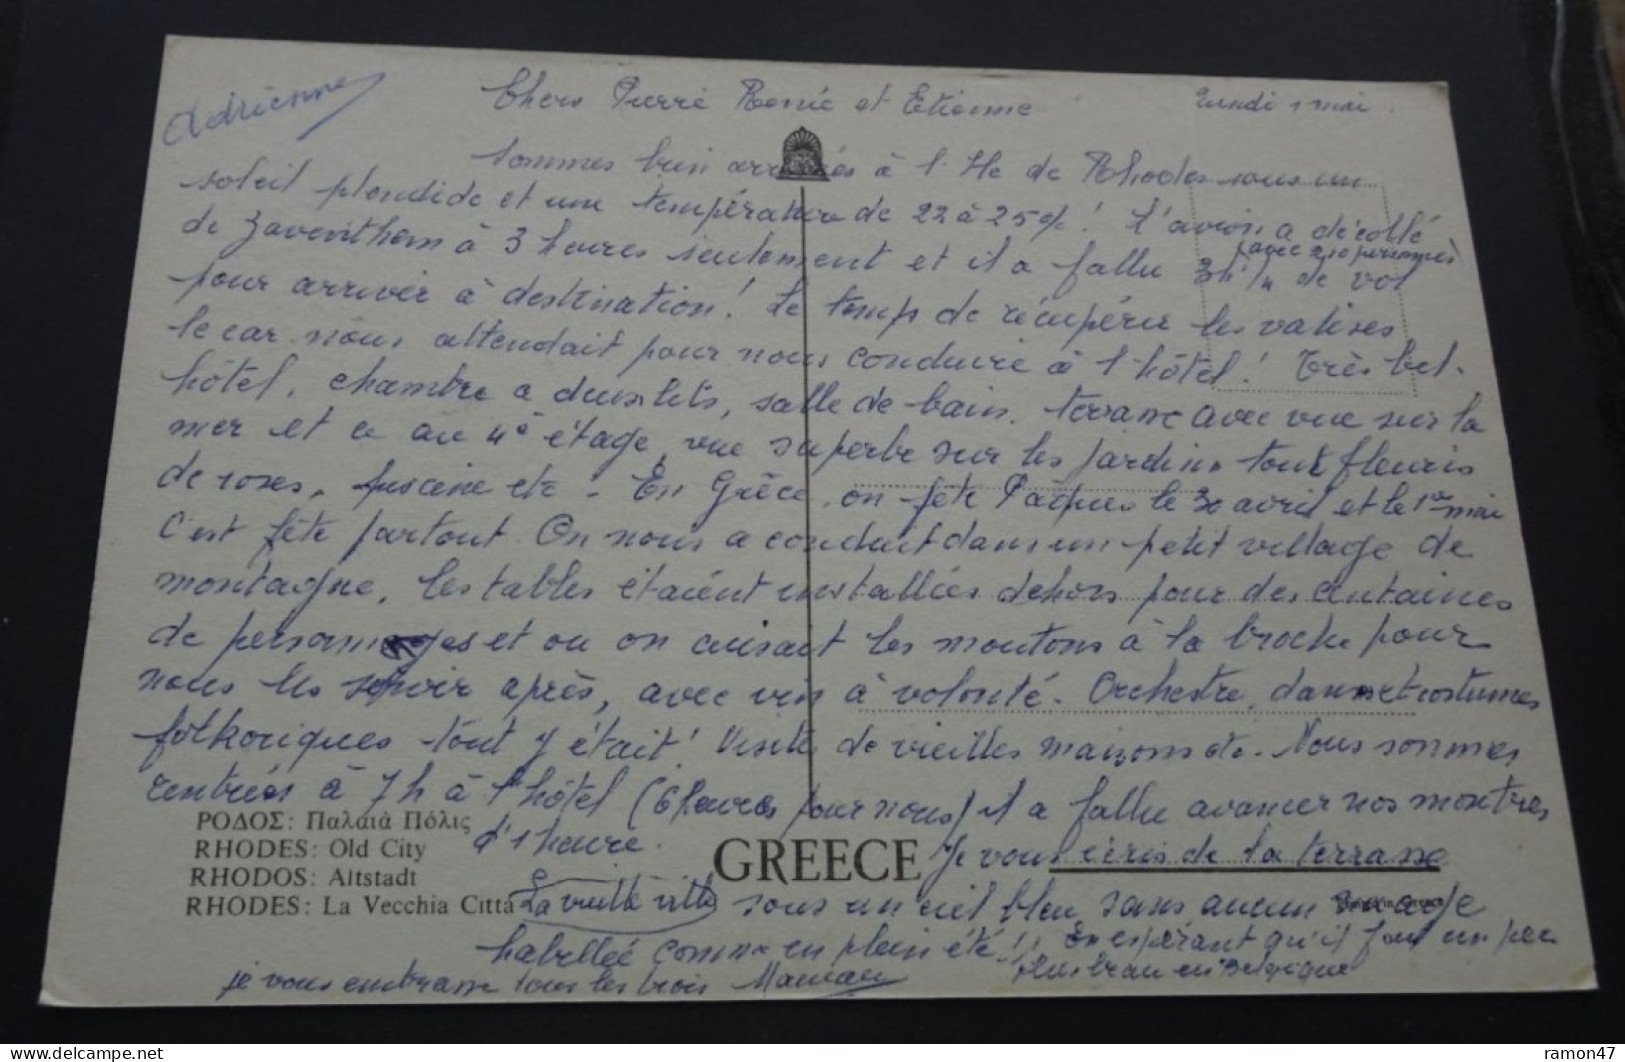 Adrienne
Chers Pierre Renée et Etienne
Lundi 1 mai
Sommes bien arrivés à l'Ile de Rhodes sous un
soleil splendide et une température de 22 à 25°! L'avion a décollé
de Zaventhem à 3 heures seulement et il a fallu 3h 1/4 de vol
(avec 210 personnes)
pour arriver à destination! Le temps de récupérer les valises
le car nous attendait pour nous conduire à l'hôtel! Très bel
hôtel, chambre a deux lits, salle de bain, terrasse avec vue sur la
mer et ce au 4e étage, vue superbe sur les jardins tout fleuris
de roses, piscine etc - En Grèce, on fête Pâques le 30 avril et le 1er mai
C'est fête partout. On nous a conduit dans un petit village de
montagne, les tables étaient installées dehors pour des centaines
de personnages et ou on cuisait les moutons à la broche pour
nous les servir après, avec vin à volonté. Orchestre, danse et costumes
folkoriques tout y était! Visite de vieilles maisons etc. Nous sommes
rentrés à 7h à l'hôtel (6 heures pour nous) il a fallu avancer nos montres
d'1 heure.
ΡΟΔΟΣ: Παλαιὰ Πόλις
RHODES: Old City
RHODOS: Altstadt
RHODES: La Vecchia Città
La vieille ville
GREECE
Je vous écris de la terrasse
Printed in Greece
sous un ciel bleu, sans aucun nuage
habillée comme en plein été! En espérant qu'il fait un peu
plus beau en Belgique
je vous embrasse tous les trois Maman
ramon47